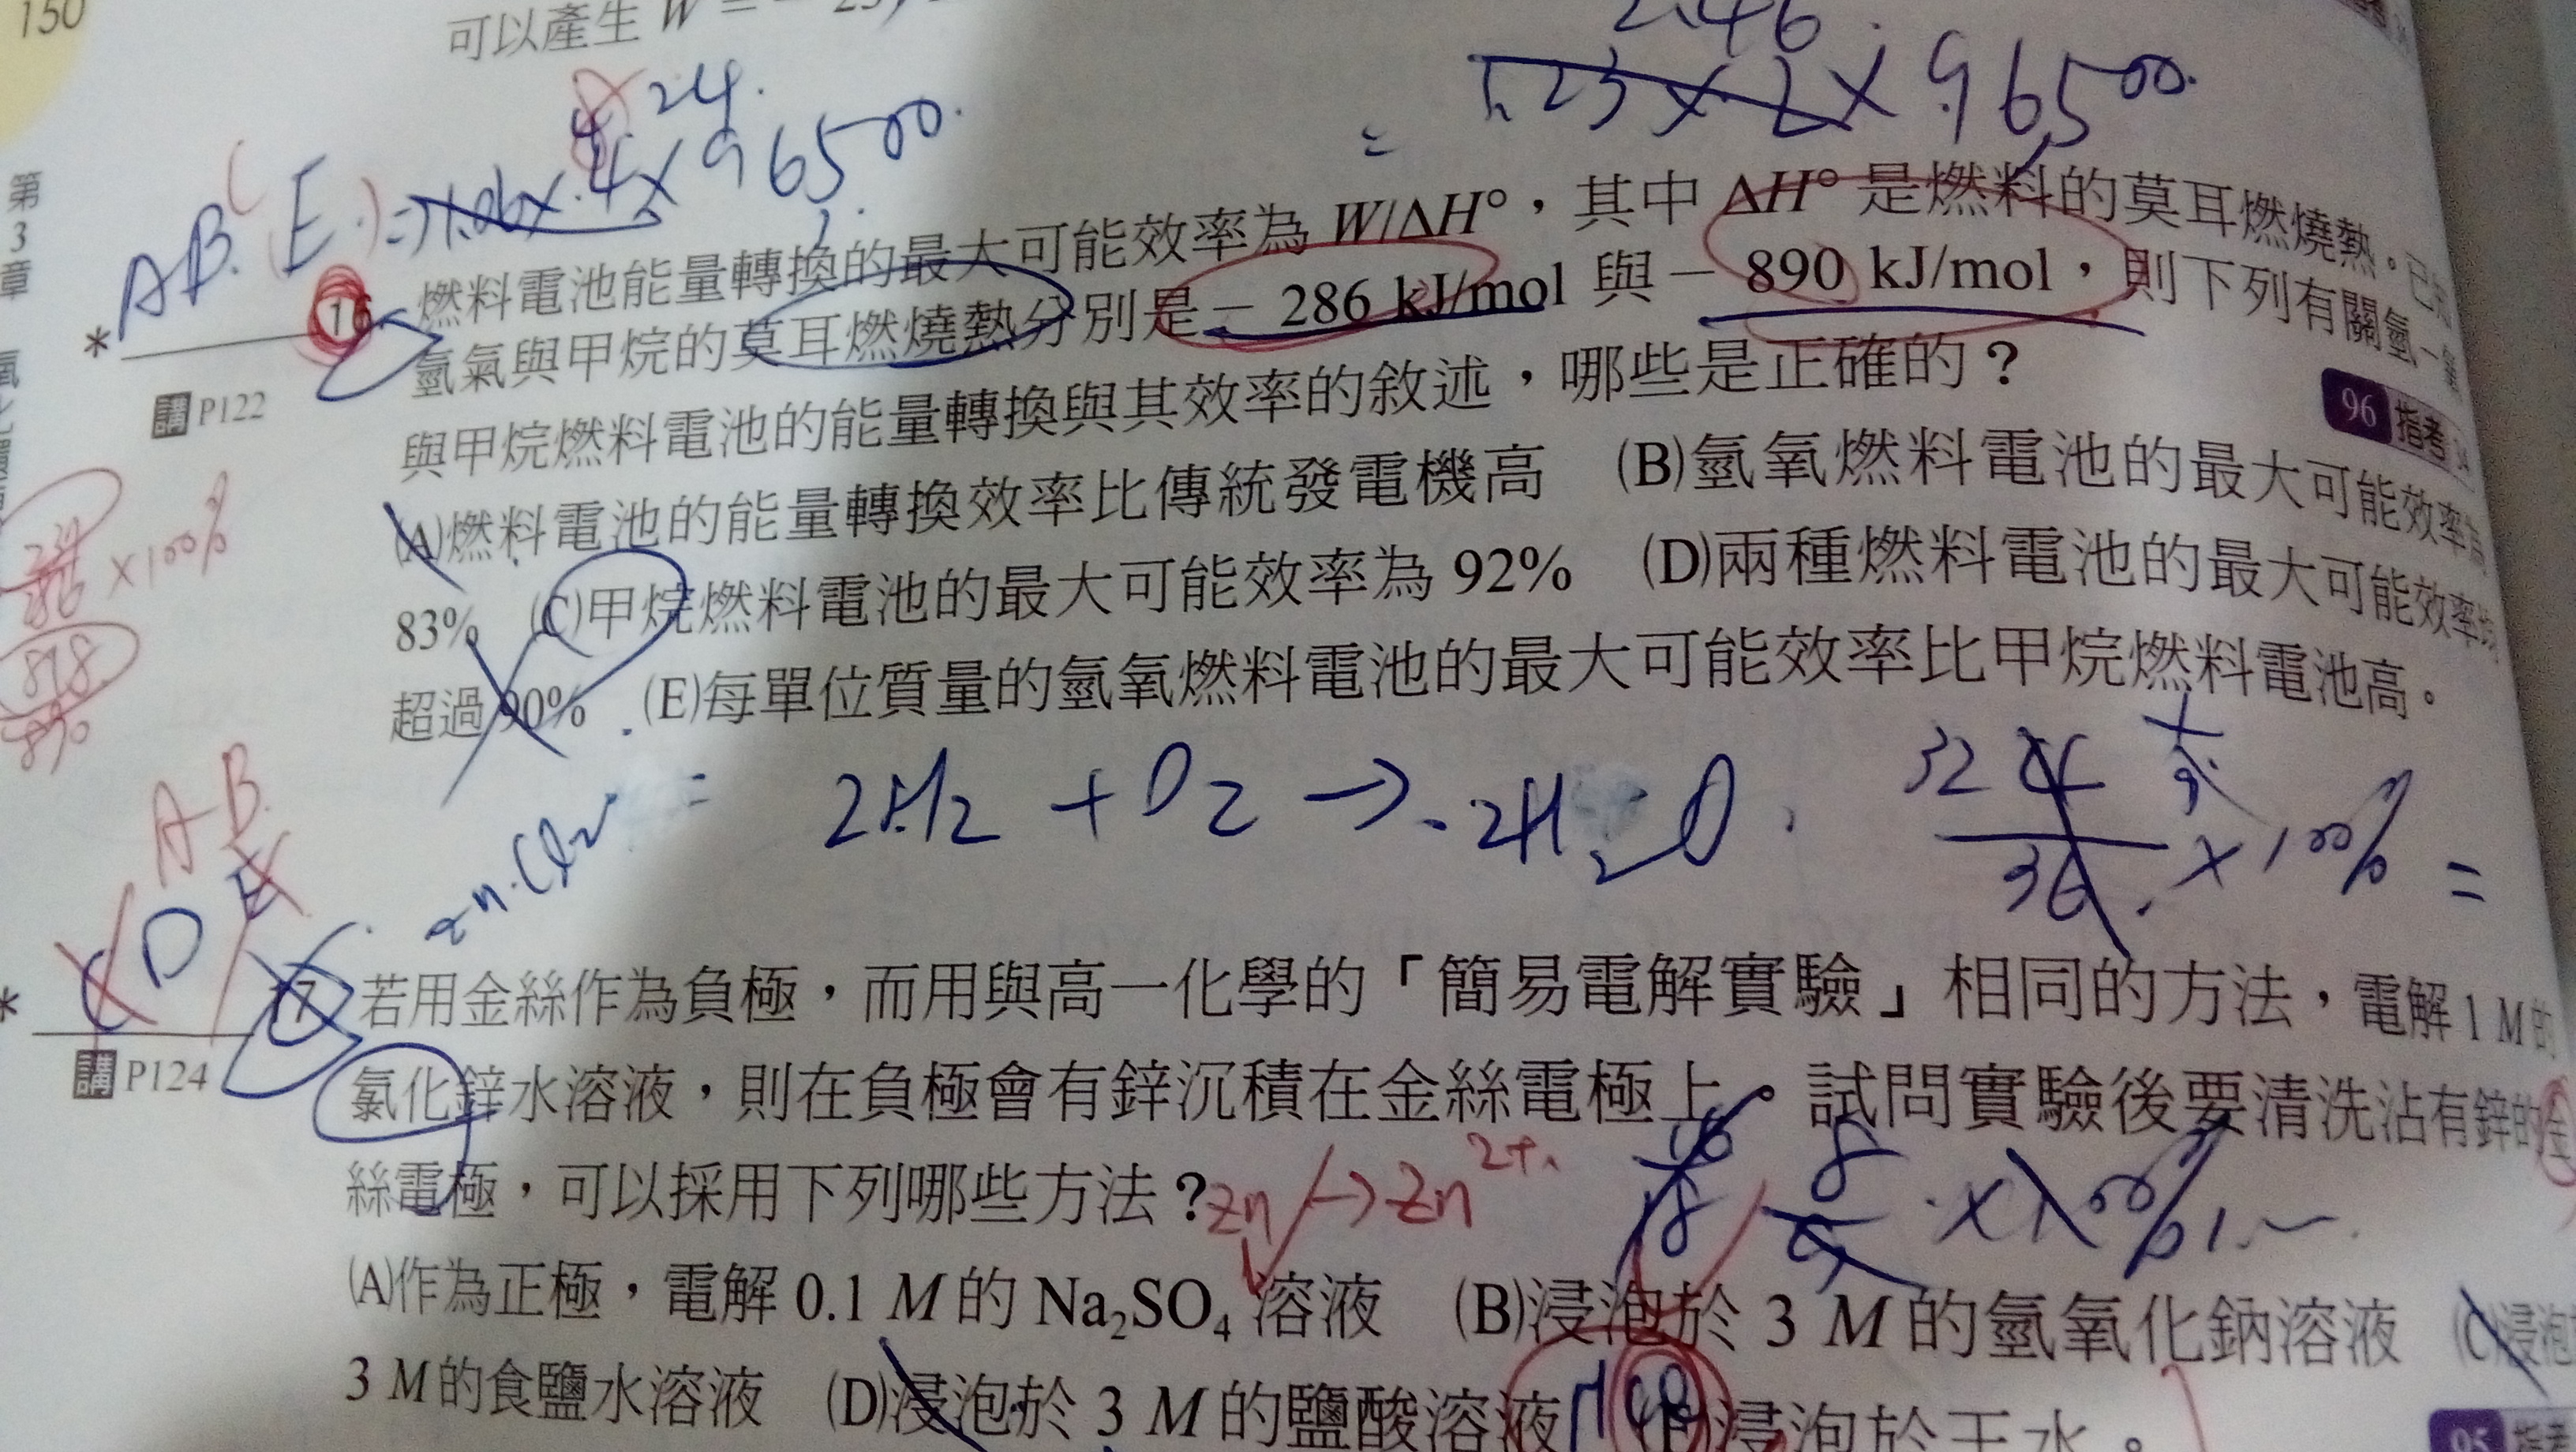 150
可以產生 W = − 23
2.46
1.23 × 2 × 96500
=
24
4 × 96500
AB(E)
第3章
16
燃料電池能量轉換的最大可能效率為 W/ΔH°，其中 ΔH° 是燃料的莫耳燃燒熱。已知
氫氣與甲烷的莫耳燃燒熱分別是 − 286 kJ/mol 與 − 890 kJ/mol，則下列有關氫－氧
與甲烷燃料電池的能量轉換與其效率的敘述，哪些是正確的？
* 講 P122
96 指考
(A)燃料電池的能量轉換效率比傳統發電機高 (B)氫氧燃料電池的最大可能效率為
83% (C)甲烷燃料電池的最大可能效率為 92% (D)兩種燃料電池的最大可能效率均
超過 90% (E)每單位質量的氫氧燃料電池的最大可能效率比甲烷燃料電池高。
286 × 100%
818
890
2H₂ + O₂ → 2H₂O
32
36 × 100% =
ZnCl₂ =
AB
CD E
17 若用金絲作為負極，而用與高一化學的「簡易電解實驗」相同的方法，電解 1 M 的
氯化鋅水溶液，則在負極會有鋅沉積在金絲電極上。試問實驗後要清洗沾有鋅的金
絲電極，可以採用下列哪些方法？
* 講 P124
Zn → Zn²⁺
16
18
8
9 × 100%
(A)作為正極，電解 0.1 M 的 Na₂SO₄ 溶液 (B)浸泡於 3 M 的氫氧化鈉溶液 (C)浸泡
3 M 的食鹽水溶液 (D)浸泡於 3 M 的鹽酸溶液 (E)浸泡於王水。
95 指考